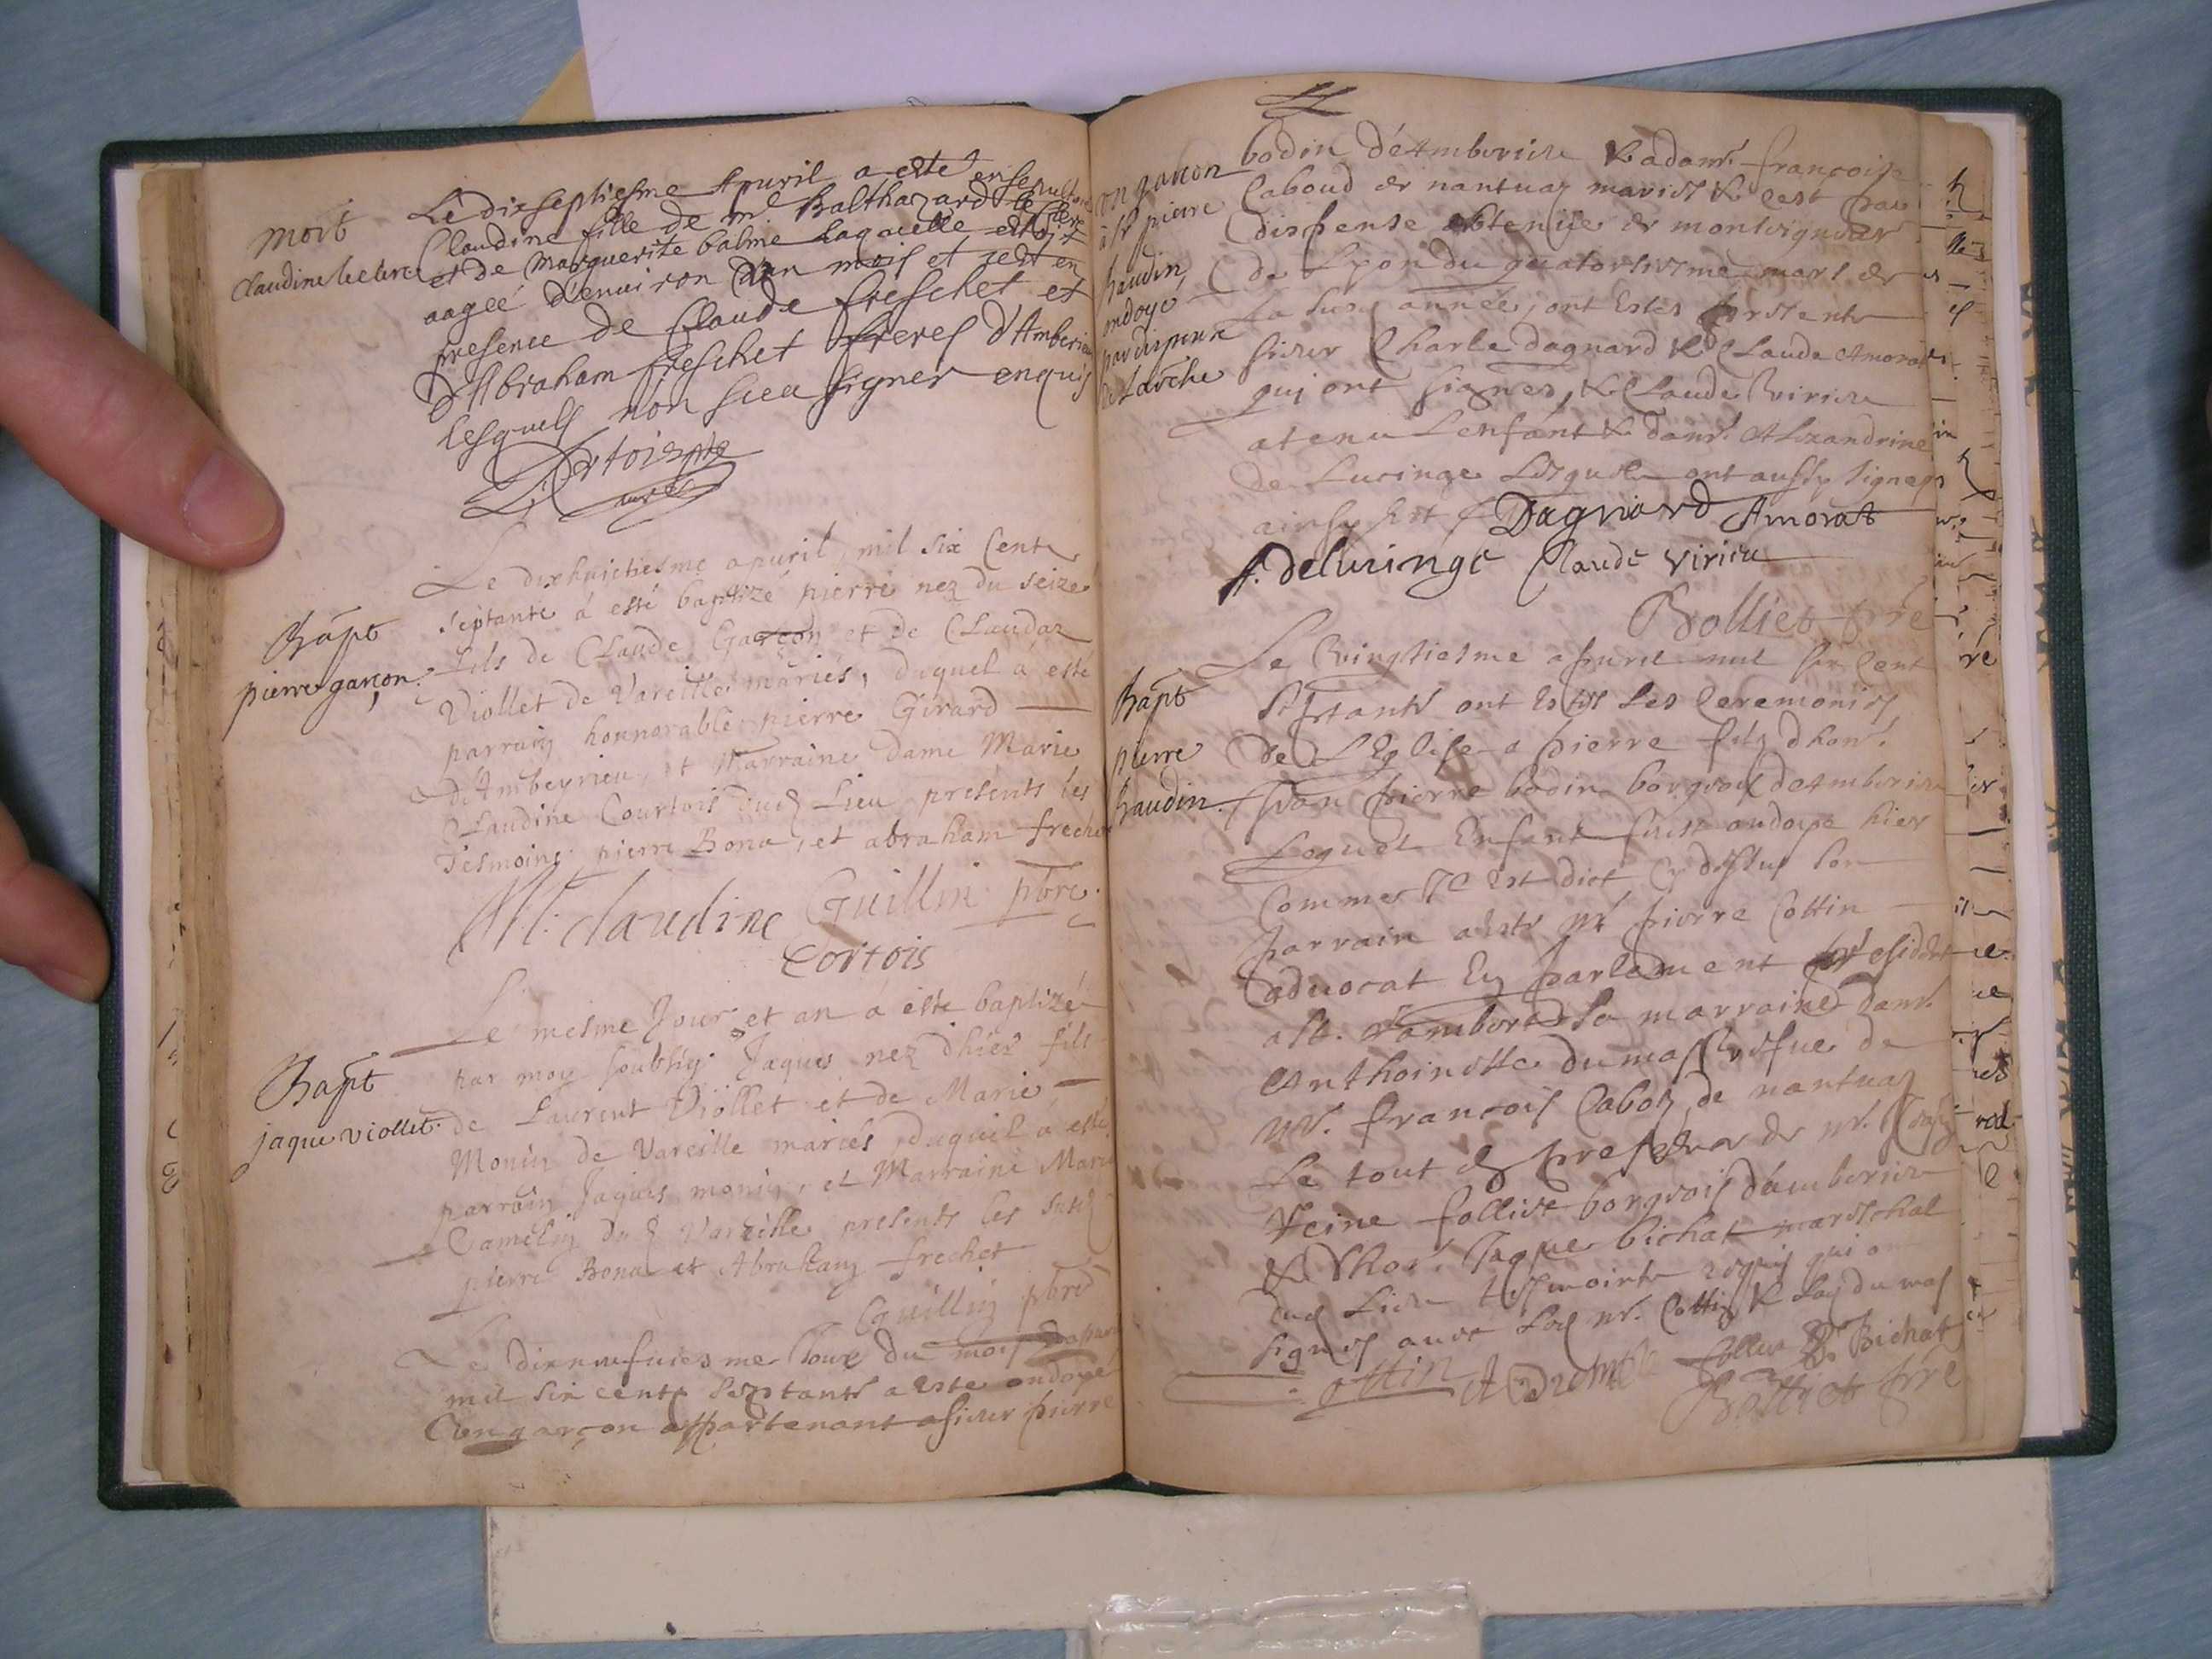 mort
Claudine le clerc
Le dixseptiesme Apuril a esté ensepulturé
Claudine fille de m.e Balthazard le clerc
et de Marguerite balme laquelle estoit
aageé d'enuiron d'un mois et cest en
presence de Claude freschet et
d'Abraham freschet freres d'Amberieu
lesquels non sceu signer enquis
Cortois pbre
curé
Bapt
pierre garçon
Le dixhuictiesme apuril, mil six Cents
septante á esté baptizé pierre nez du seize
fils de Claude Garçon et de Claudaz
Viollet de Vareille mariés, duquel a esté
parrain honnorable pierre Girard
d'Ambeyrieu, et Marraine dame Marie
Claudine Courtois dud Lieu presents les
Tesmoins pierre Bona, et abraham frechet
M: Claudine Guillin pbre.
Cortois
Bapt
jaque viollet
Le mesme Jour et an á esté baptizé
par moy soubsig. Jaques nez d'hier fils
de Laurent Viollet et de Marie
Monin de Vareille mariés duquel a esté
parrain Jaques monin, et Marraine Marie
Camelin dud Vareille presents les susd
pierre Bona et Abraham frechet
Guillin pbre
Le dixneufuiesme Jour du mois dapuril
mil six cents septante a esté ondoyé
Un garçon appartenant a sieur pierre
un garcon
à sr pierre
baudin
ondoyé
par dispense
de Larche
bodin d'Amberieu & a dam.e françoise
Caboud de nantuaz mariés & cest par
dispense obtenue de monseigneur
de Lyon du quatorsiesme mars de
La susd année, ont estes presents
sieur Charle dagnard & Claude Amorat
qui ont signes, & Claude Virieu
a tenu L'enfant & dam.e Alexandrine
de Lucinge Lesquels ont aussy signes
ainsy est Dagniard Amorat
A. Deluinge Claude Virieu
Bolliet pre
Bapt
pierre
baudin
Le Vingtiesme apuril mil six cent
septante ont estes Les Ceremonies
de L'Eglise a pierre fils d'hon.
Jean pierre bodin borgeois de Amberieu
Lequel Enfant fust ondoye hier
Comme Il est dict cy dessus son
parrain a esté M.r pierre Cottin
advocat En parlement residant
a St. Rambert sa marraine dam.e
Anthoinette du mas vefue de
M.r francois Caboz de nantuaz
Le tout En presence de M.r
Reine follier borgeois damberieu
& hon. Jaque bichat mareschal
dud Lieu tesmoints requis qui ont
signes avec Led M.r Cottin & Lad du mas
Cottin A Dumas follier Bichat
Bolliet pre